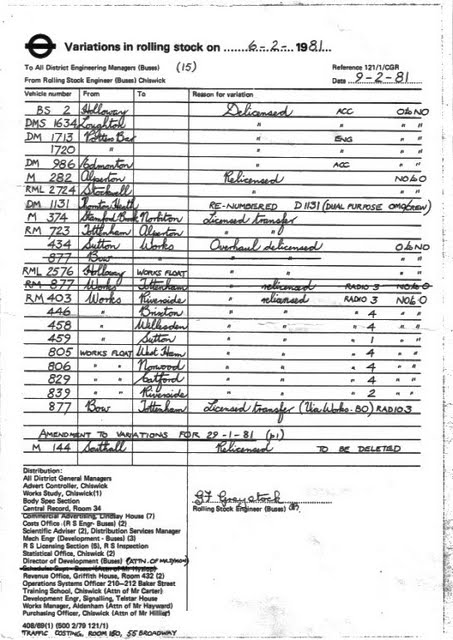 Variations in rolling stock on 6-2- 1981.
To All District Engineering Managers (Buses) (15) Reference 121/1/CGR
From Rolling Stock Engineer (Buses) Chiswick Date 9-2-81
Vehicle number From To Reason for variation
BS 2 Holloway Delicensed ACC O to NO
DMS 1634 Loughton " " "
DM 1713 Potters Bar " ENG " "
1720 " " " "
DM 986 Edmonton " ACC " "
M 282 Alperton Relicensed N to O
RML 2724 Stockwell " " "
DM 1131 Thornton Heath RE-NUMBERED D1131 (DUAL PURPOSE OMO/CREW)
M 374 Stamford Brook Norbiton Licensed transfer
RM 723 Tottenham Alperton " "
434 Sutton Works Overhaul delicensed O to NO
877 Bow " " " "
RML 2576 Holloway WORKS FLOAT " " " "
RM 877 Works Tottenham " relicensed RADIO 3 NO to O
RM 403 Works Riverside " relicensed RADIO 3 NO to O
446 " Brixton " " " 4 " "
458 " Willesden " " " 4 " "
459 " Sutton " " " 1 " "
805 WORKS FLOAT West Ham " " " 4 " "
806 " " Norwood " " " 4 " "
829 " " Catford " " " 4 " "
839 " " Riverside " " " 2 " "
877 Bow Tottenham Licensed transfer (Via Works. BO) RADIO 3
AMENDMENT TO VARIATIONS FOR 29-1-81 (p1)
M 144 Southall Relicensed TO BE DELETED
Distribution:
All District General Managers
Advert Controller, Chiswick
Works Study, Chiswick (1)
Body Spec Section
Central Record, Room 34
Commercial Advertising, Lindsay House (7)
Costs Office (R S Engr- Buses) (2)
Scientific Adviser (2), Distribution Services Manager
Mech Engr (Development - Buses) (3)
R S Licensing Section (5), R S Inspection
Statistical Office, Chiswick (2)
Director of Development (Buses)
Revenue Office, Griffith House, Room 432 (2)
Operations Systems Officer 210-212 Baker Street
Training School, Chiswick (Attn of Mr Carter)
Development Engr, Signalling, Telstar House
Works Manager, Aldenham (Attn of Mr Hayward)
Purchasing Officer, Chiswick (Attn of Mr Hillier)
GF Graystock
Rolling Stock Engineer (Buses)
408/89(1) (500 2/79 121/1)
TRAFFIC COSTING, ROOM 180, 55 BROADWAY